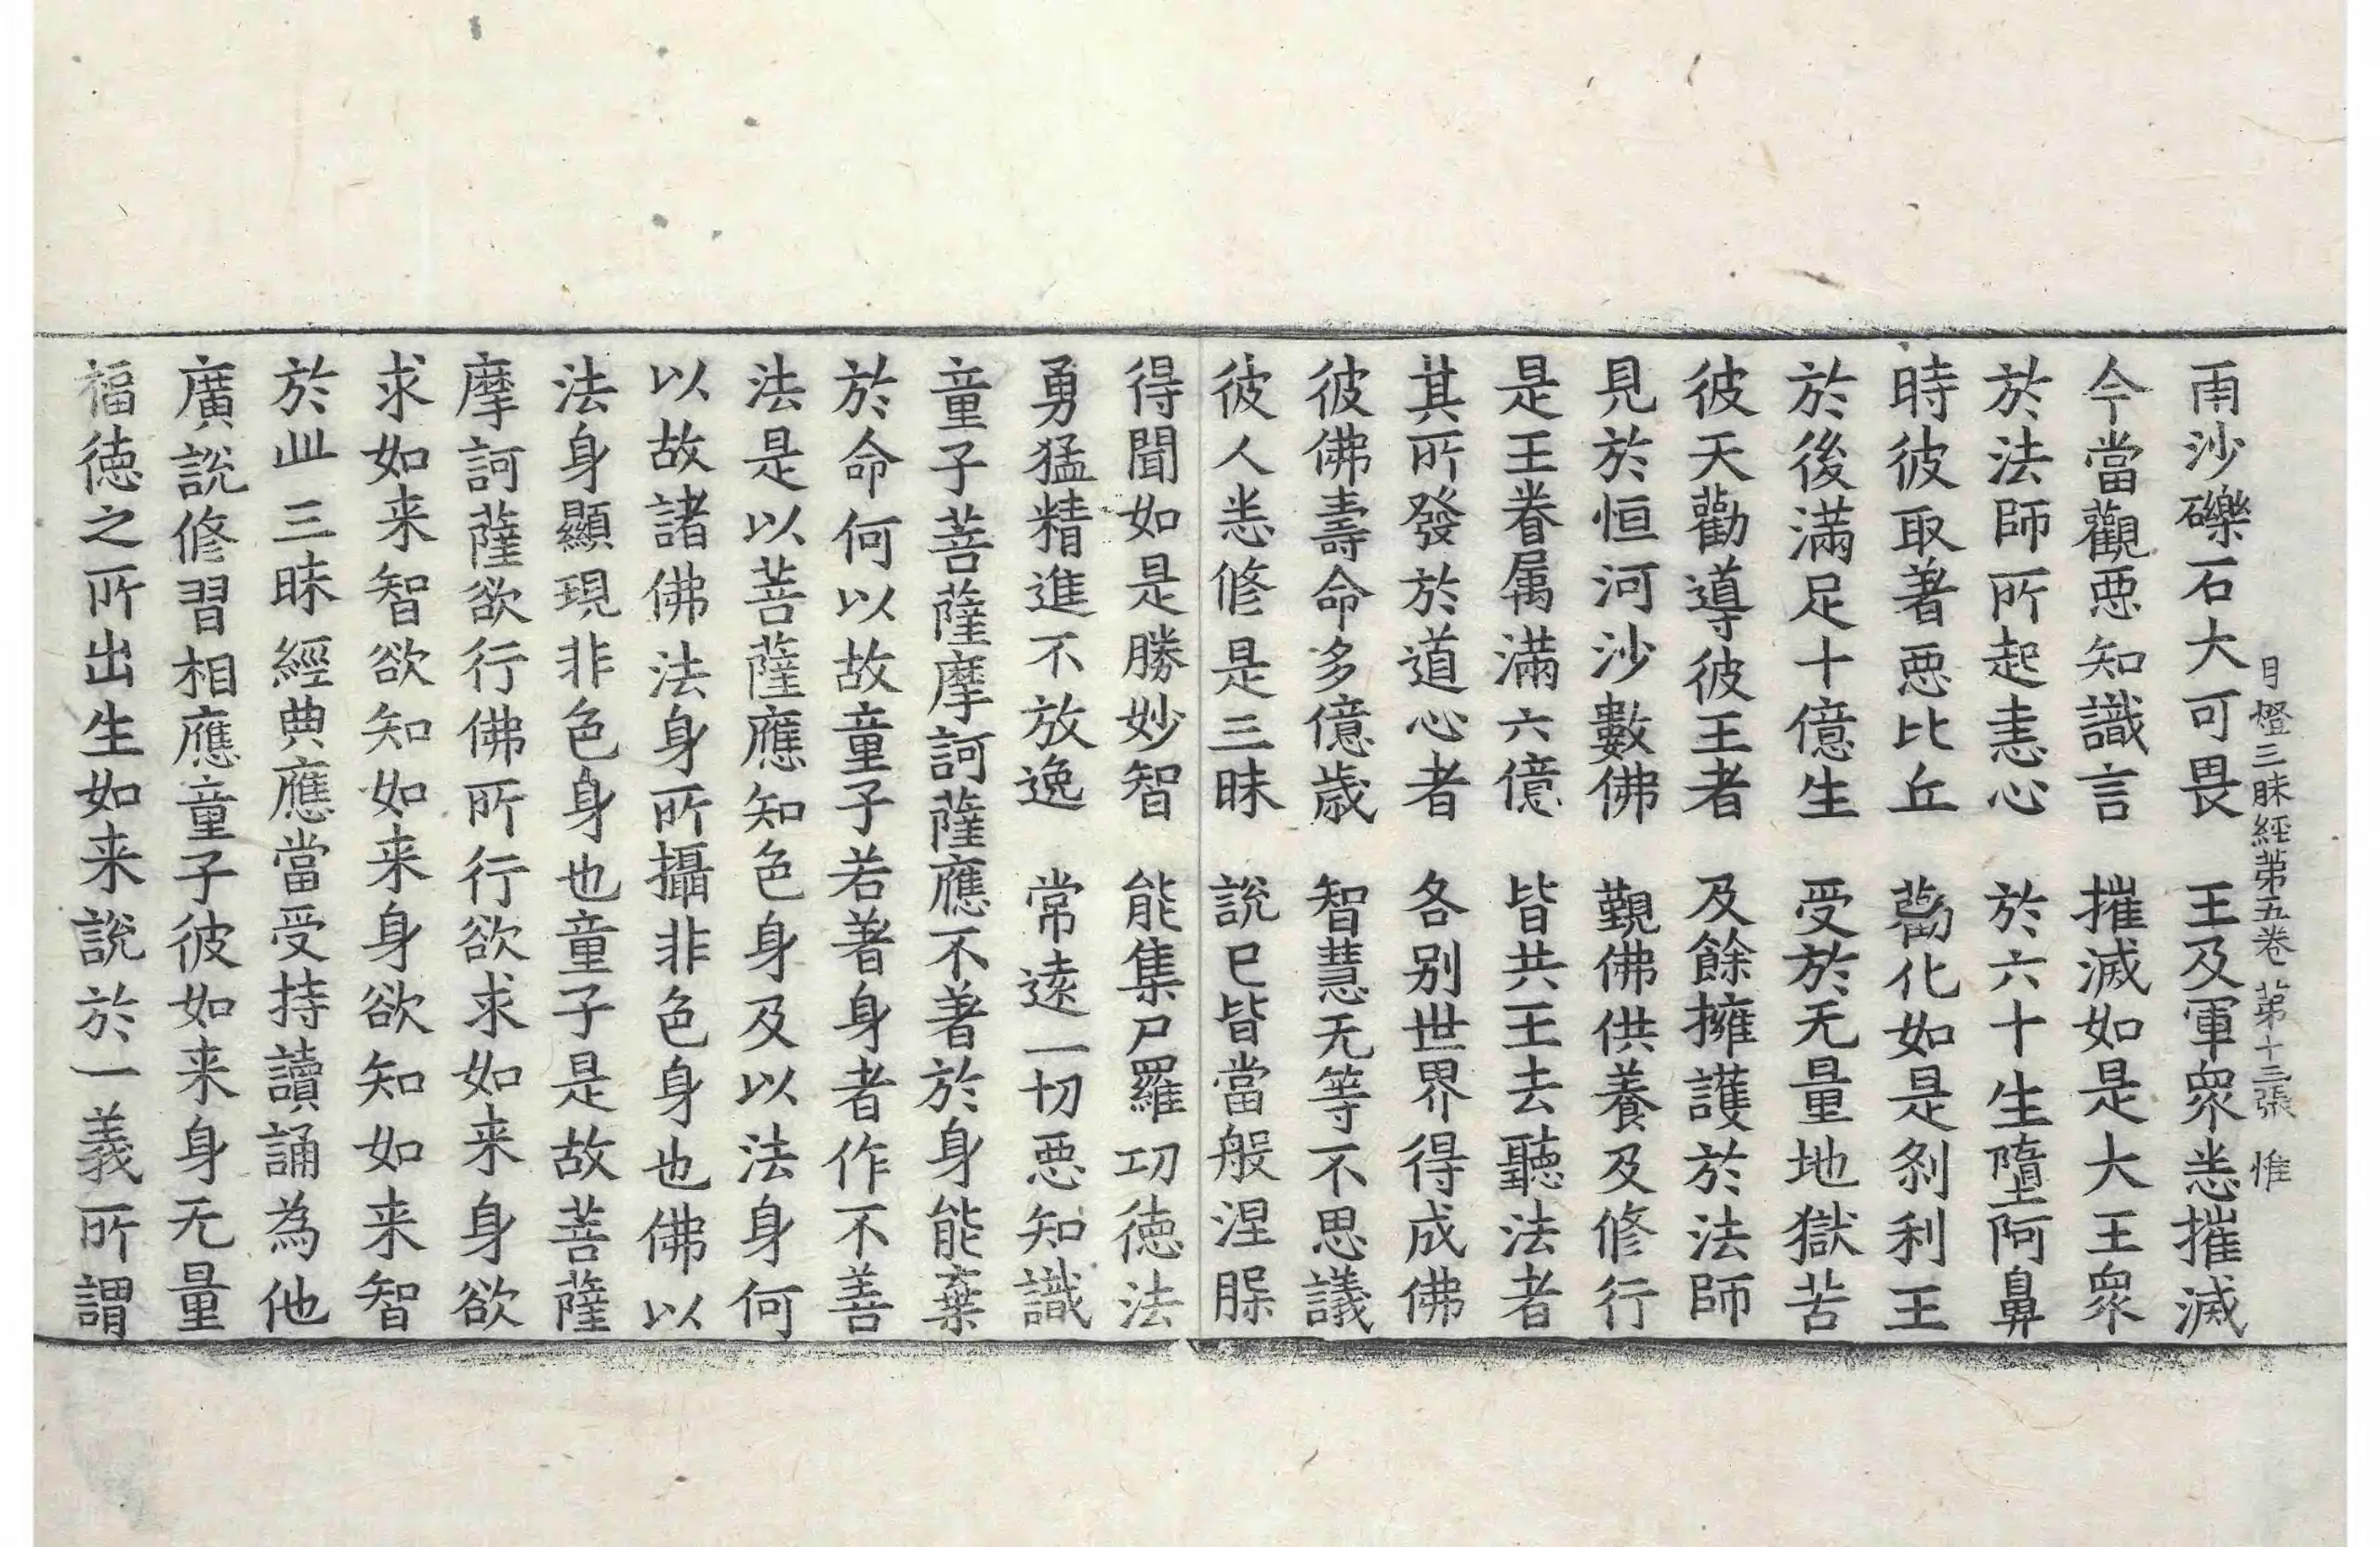 月燈三昧經第五卷 第十三張 惟
雨沙礫石大可畏 王及軍衆悉摧滅
今當觀惡知識言 摧滅如是大王衆
於法師所起恚心 於六十生墮阿鼻
時彼取著惡比丘 勸化如是刹利王
於後滿足十億生 受於无量地獄苦
彼天勸導彼王者 及餘擁護於法師
見於恒河沙數佛 覲佛供養及修行
是王眷属滿六億 皆共王去聽法者
其所發於道心者 各別世界得成佛
彼佛壽命多億歲 智慧无等不思議
彼人悉修是三昧 說已皆當般涅槃
得聞如是勝妙智 能集尸羅㓛德法
勇猛精進不放逸 常遠一切惡知識
童子菩薩摩訶薩應不著於身能棄
於命何以故童子若著身者作不善
法是以菩薩應知色身及以法身何
以故諸佛法身所攝非色身也佛以
法身顯現非色身也童子是故菩薩
摩訶薩欲行佛所行欲求如来身欲
求如来智欲知如来身欲知如来智
於此三昧經典應當受持讀誦為他
廣說修習相應童子彼如来身无量
福德之所出生如来說於一義所謂